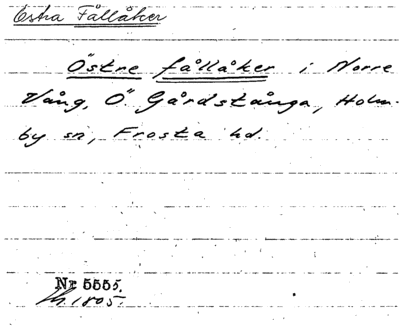 Östra Fållåker
Östre fållåker i Norre
Vång, Ö Gårdstånga, Holm-
by sn, Frosta hd.
Nr 5555.
1805.